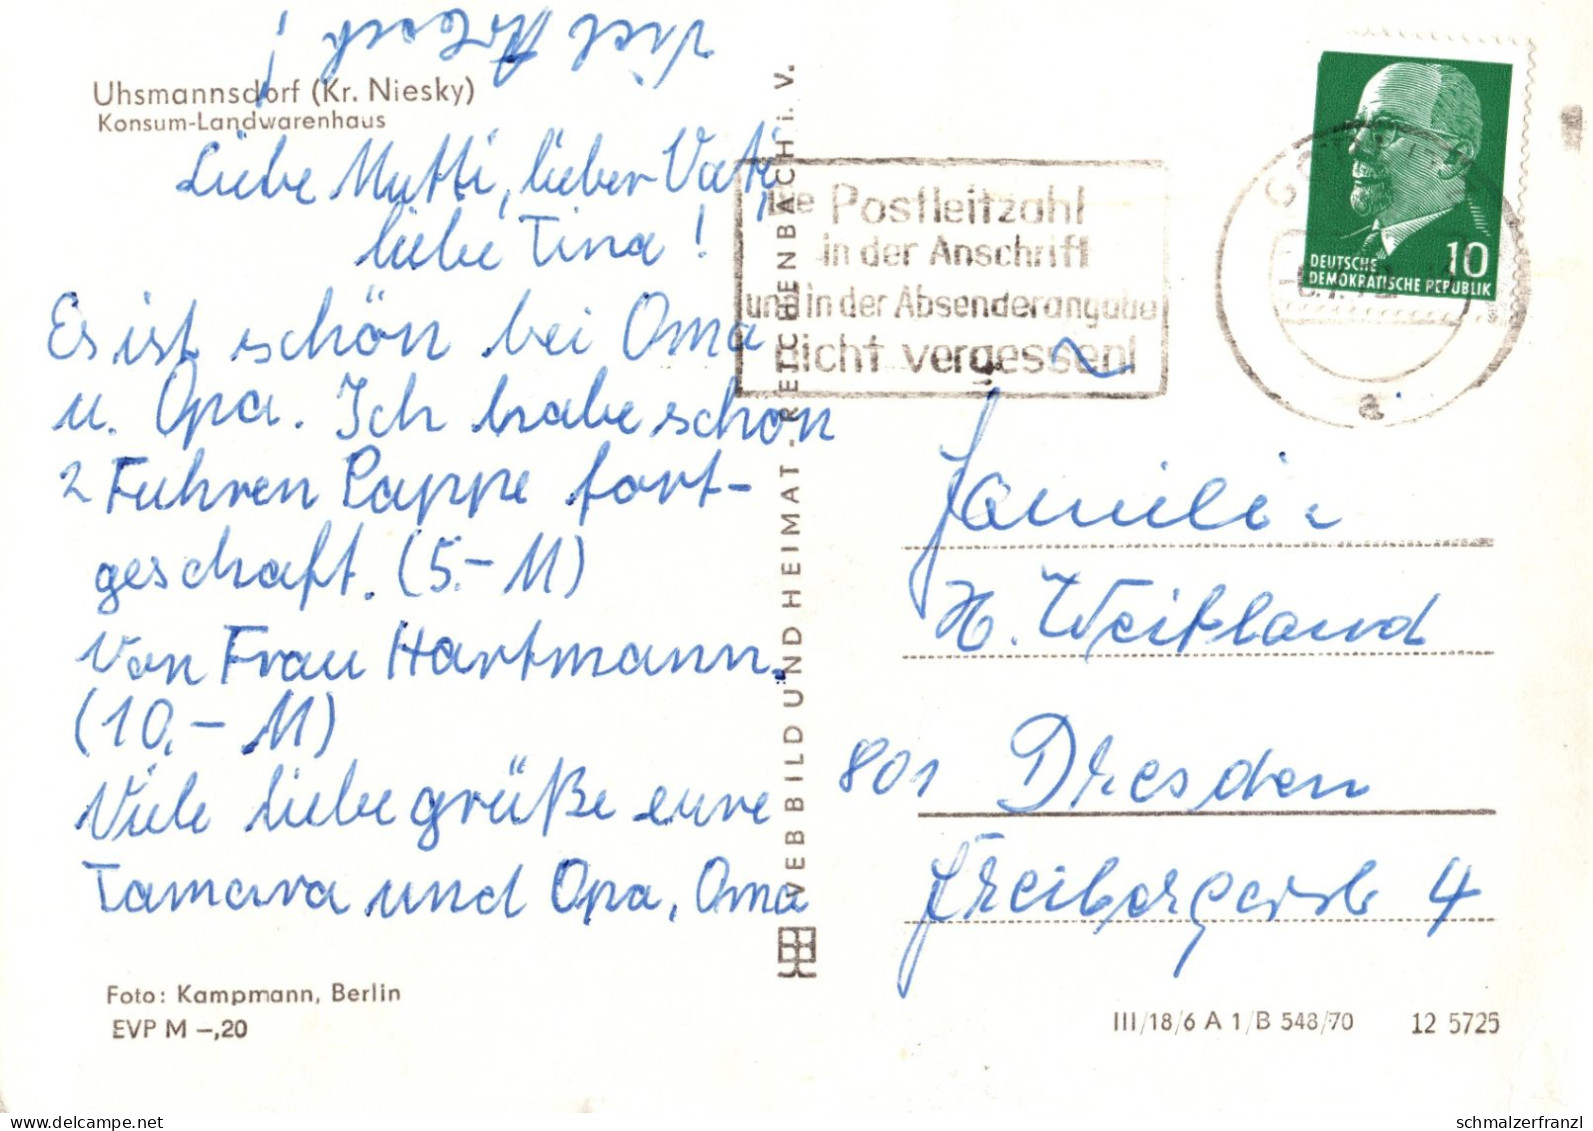 Viel Arbeit!
Uhsmannsdorf (Kr. Niesky)
Konsum-Landwarenhaus
Liebe Mutti, lieber Vati,
liebe Tina!
Es ist schön bei Oma
u. Opa. Ich habe schon
2 Fuhren Pappe fort-
geschaft. (5.- M)
Von Frau Hartmann.
(10,- M)
Viele liebe grüße eure
Tamara und Opa, Oma
Foto: Kampmann, Berlin
EVP M –,20
VEB BILD UND HEIMAT - REICHENBACH i. V.
Postleitzahl
in der Anschrift
und in der Absenderangabe
nicht vergessen!
a
10
DEUTSCHE
DEMOKRATISCHE REPUBLIK
Familie
H. Weikland
801 Dresden
Freibergerstr 4
III/18/6 A 1/B 548/70 12 5725
schmalzerfranzl